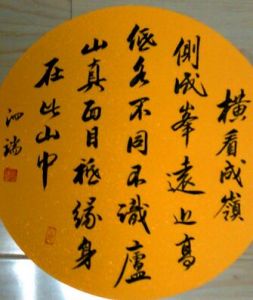 橫看成嶺
側成峯遠近高
低各不同不識廬
山真面目祗緣身
在此山中